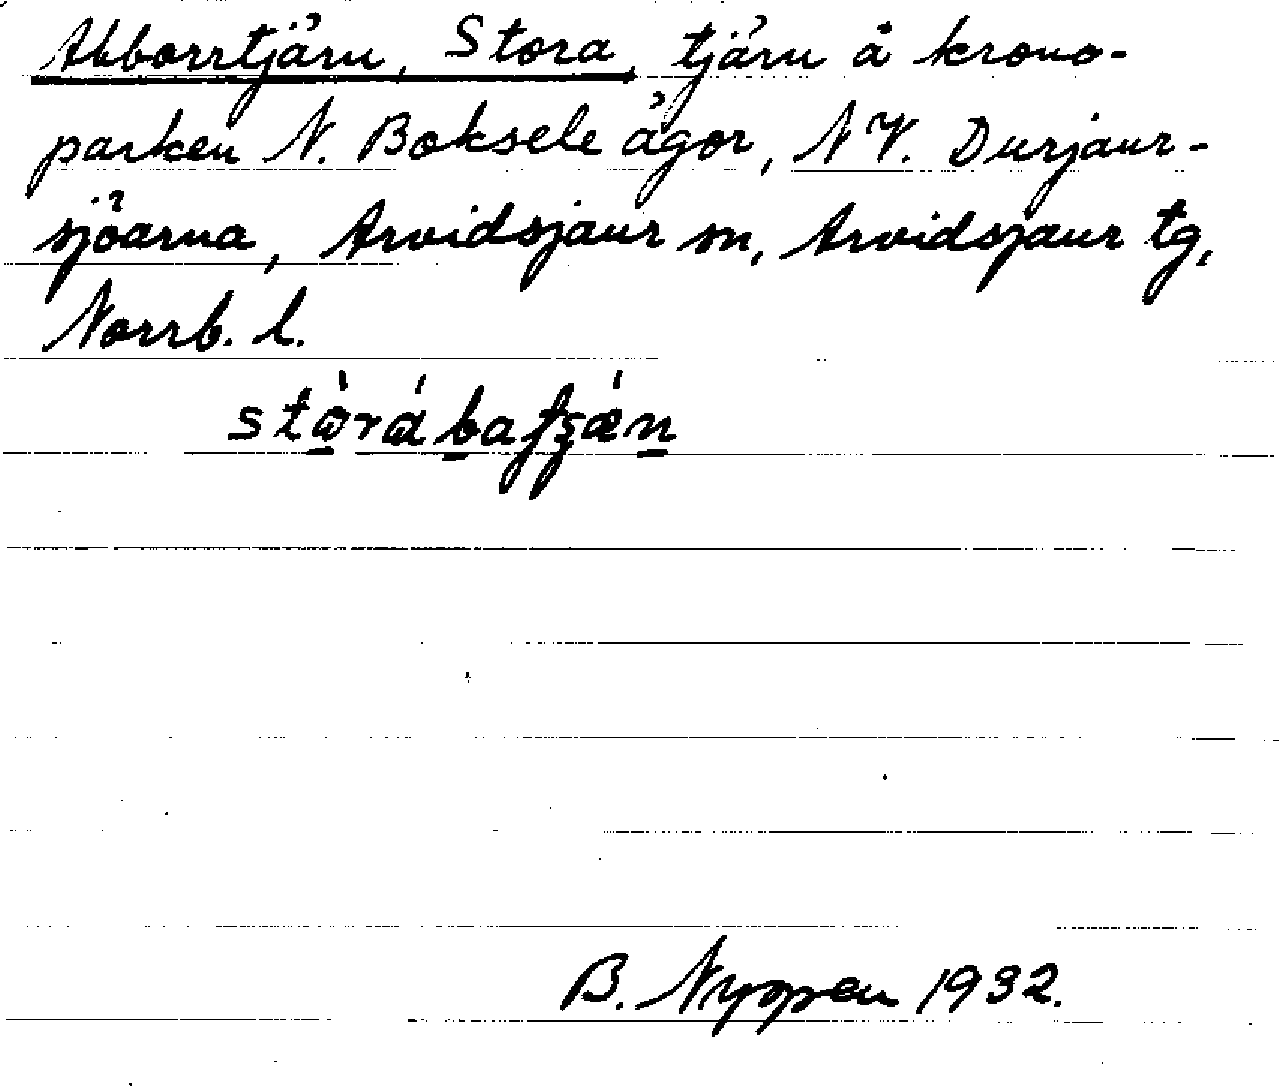 Abborrtjärn, Stora, tjärn å krono-
parken N. Boksele ägor, NV. Durjaur-
sjöarna, Arvidsjaur sn, Arvidsjaur tg,
Norrb. l.
B. Nyppen 1932.